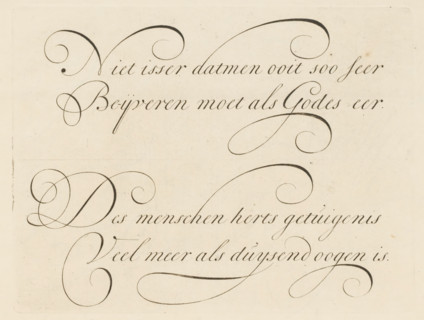 Niet isser datmen ooit soo seer
Beÿveren moet als Godes eer.
Des menschen herts getuigenis
Veel meer als duysend oogen is.